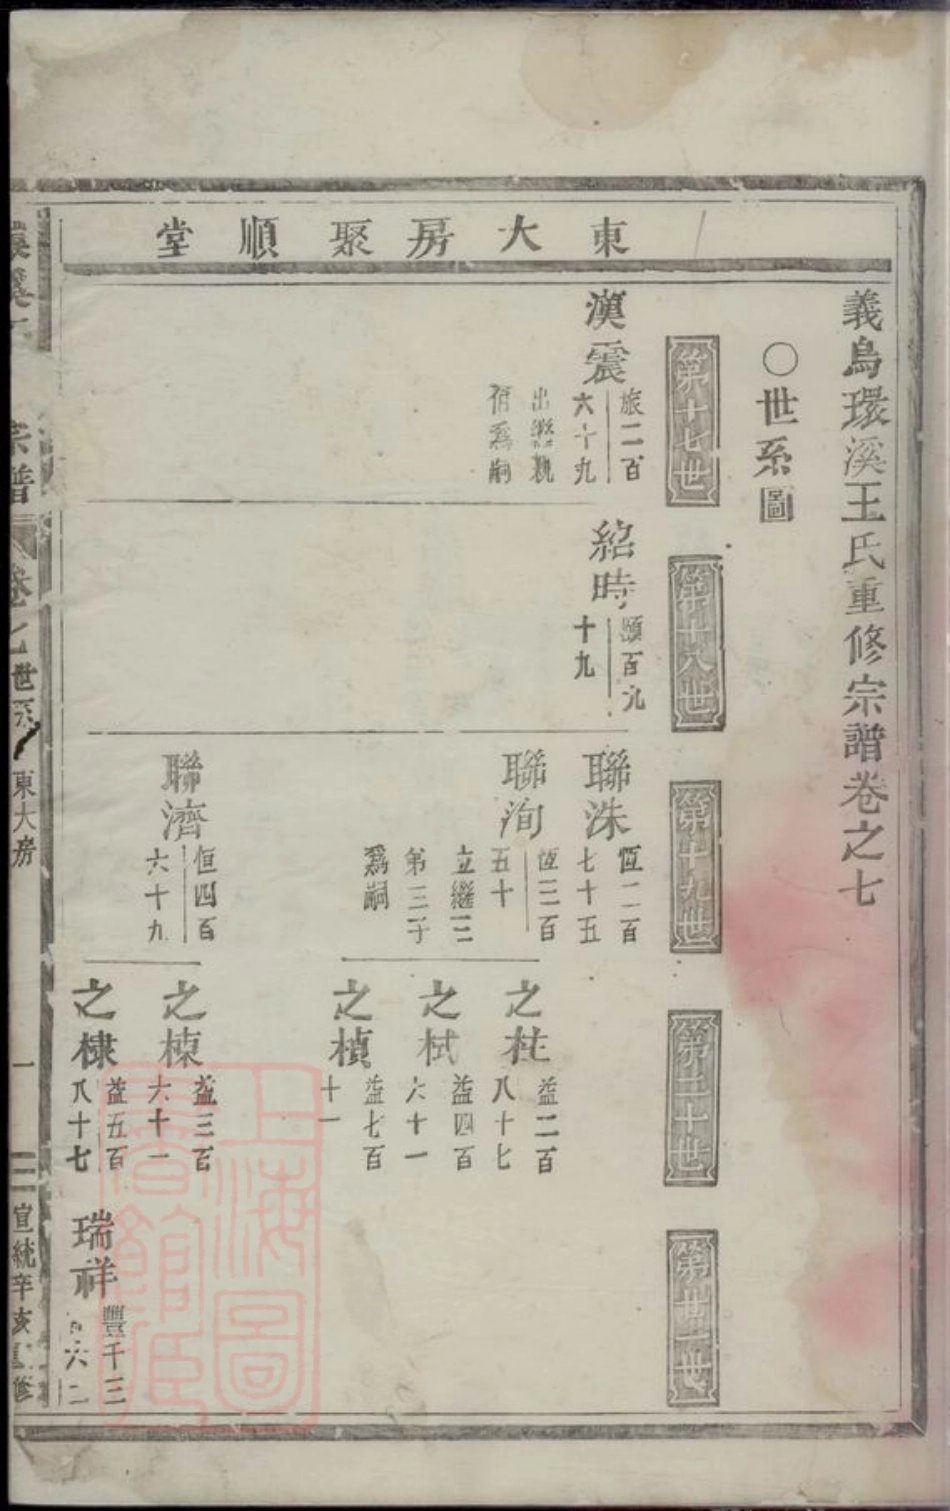 義烏環溪王氏重修宗譜卷之七
〇世系圖
東大房聚順堂
第十七世
漢震
旅二百
六十九
出繼親
侑爲嗣
第十八世
紹時
顯百九
十九
第十九世
聯洙
恆二百
七十五
聯洵
恆三百
五十
立繼三
第三子
爲嗣
聯濟
恒四百
六十九
第二十世
之柱
益二百
八十七
之栻
益四百
六十一
之楨
益七百
十一
之棟
益三百
六十一
之棣
益五百
八十七
第廿一世
瑞祥
豐千三
六二
宗譜
卷七
世系
東大房
一
宣統辛亥重修
上海圖書館藏